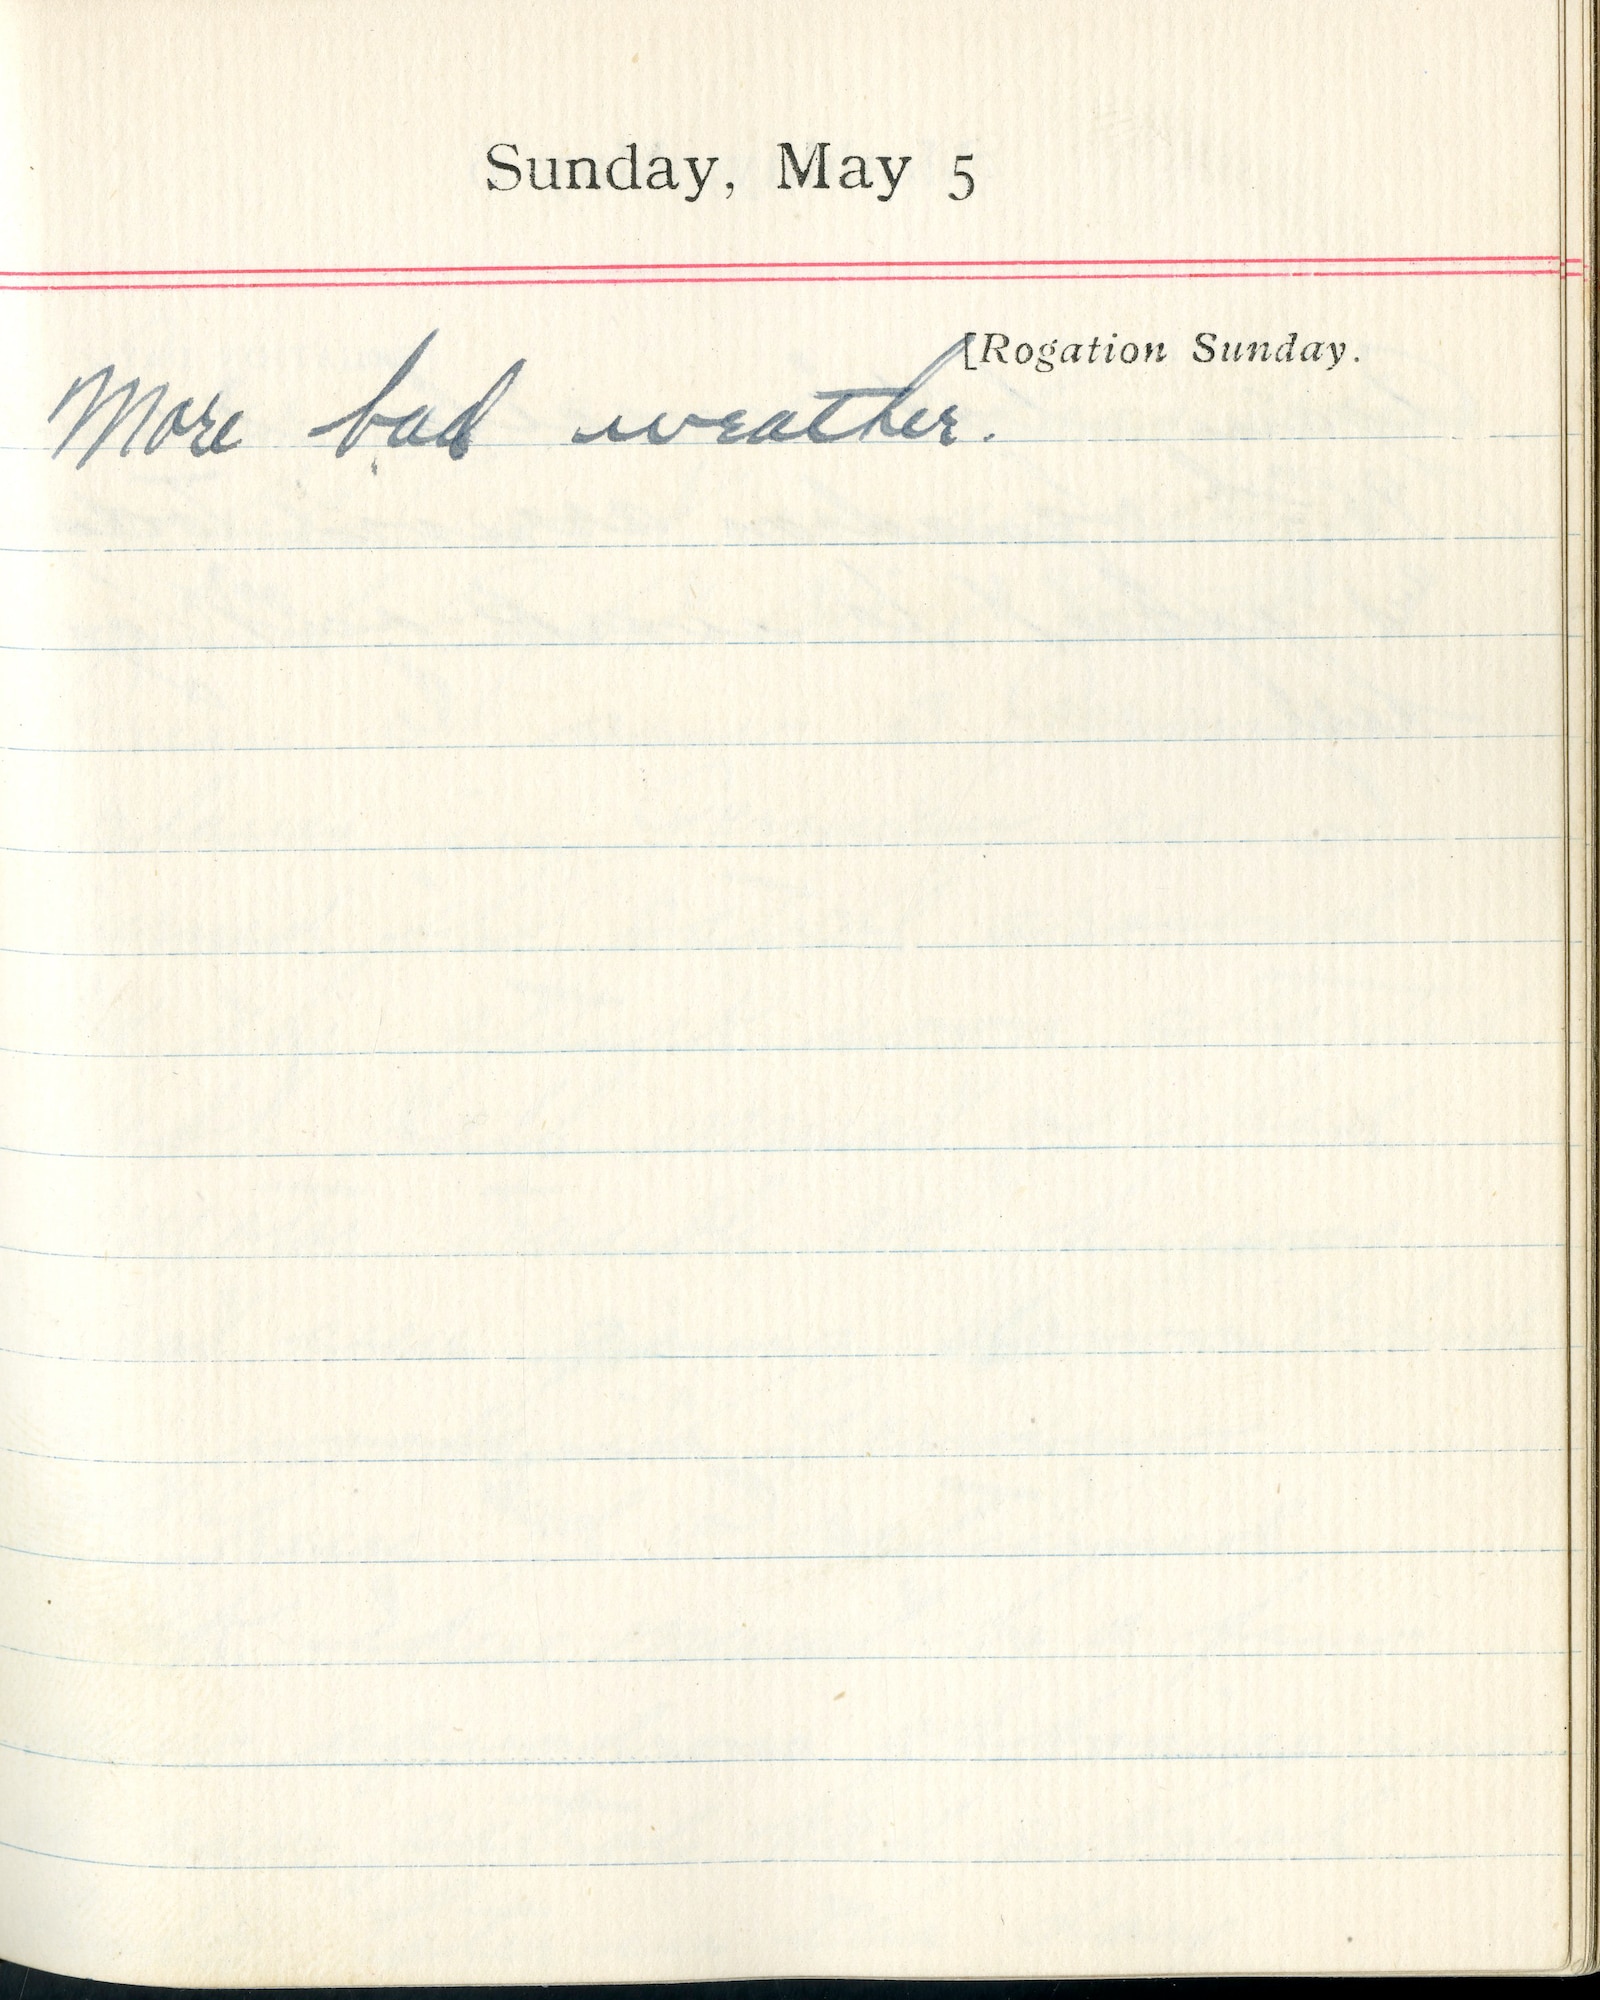 Sunday, May 5
[Rogation Sunday.
More bad weather.